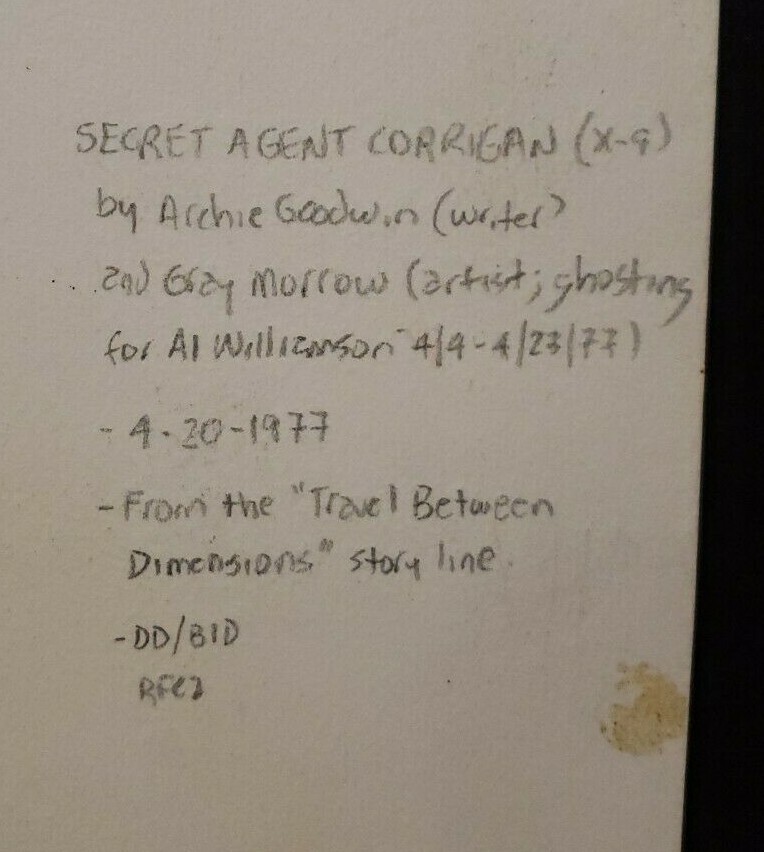 SECRET AGENT CORRIGAN (X-9)
by Archie Goodwin (writer)
and Gray Morrow (artist; ghosting
for Al Williamson 4/4-4/23/77)
- 4-20-1977
- From the "Travel Between
Dimensions" story line.
- DD/BID